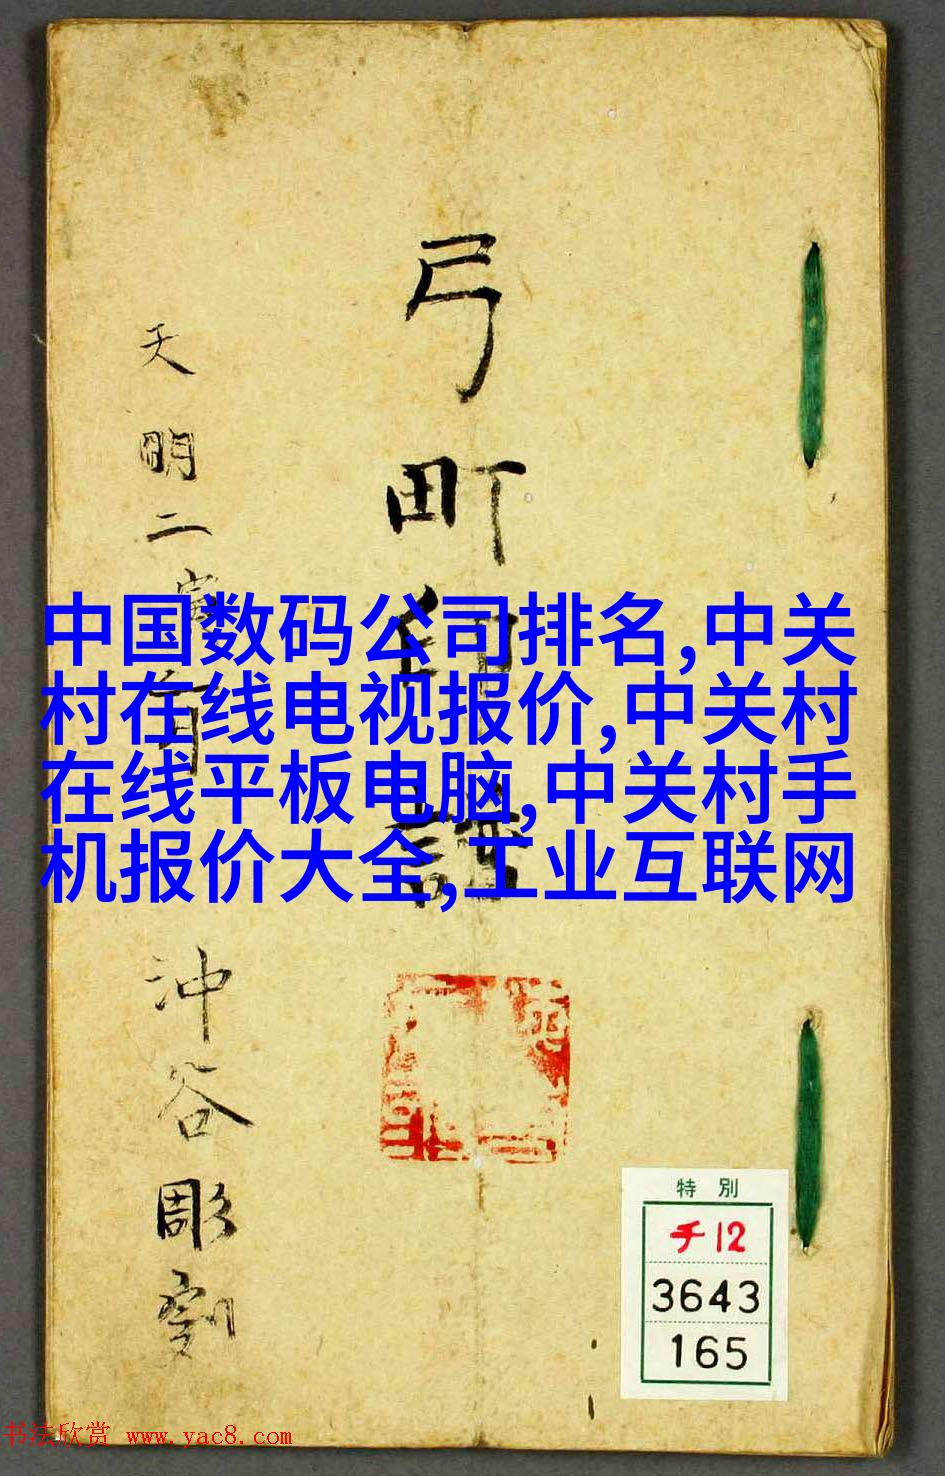 弓町印譜
天明二寅 沖谷彫刻
中国数码公司排名,中关
村在线电视报价,中关村
在线平板电脑,中关村手
机报价大全,工业互联网
特別
チ12
3643
165
书法欣赏 www.yac8.com